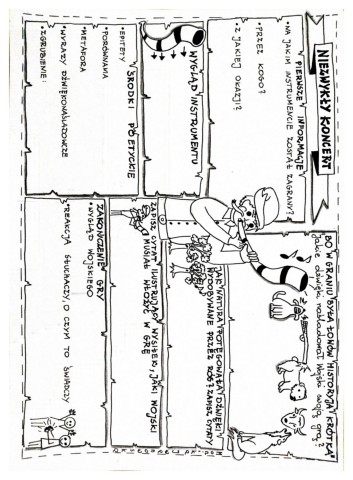 NIEZWYKŁY KONCERT
PIERWSZE INFORMACJE
• NA JAKIM INSTRUMENCIE ZOSTAŁ ZAGRANY?
• PRZEZ KOGO?
• Z JAKIEJ OKAZJI?
WYGLĄD INSTRUMENTU
ŚRODKI POETYCKIE
• EPITETY
• PORÓWNANIA
• METAFORA
• WYRAZY DŹWIĘKONAŚLADOWCZE
• ZGRUBIENIE:
BO W GRANIU BYŁA ŁOWÓW HISTORYJA KRÓTKA"
Jakie dźwięki naśladował Wojski swoją grą?
JAK NATURA POTĘGOWAŁA DŹWIĘKI
WYDOBYWANE PRZEZ RÓG? ZAPISZ CYTATY
ZAPISZ CYTAT ILUSTRUJĄCY WYSIŁEK, JAKI WOJSKI
MUSIAŁ WŁOŻYĆ W GRĘ
ZAKOŃCZENIE GRY
• WYGLĄD WOJSKIEGO
• REAKCJA SŁUCHACZY, O CZYM TO ŚWIADCZY